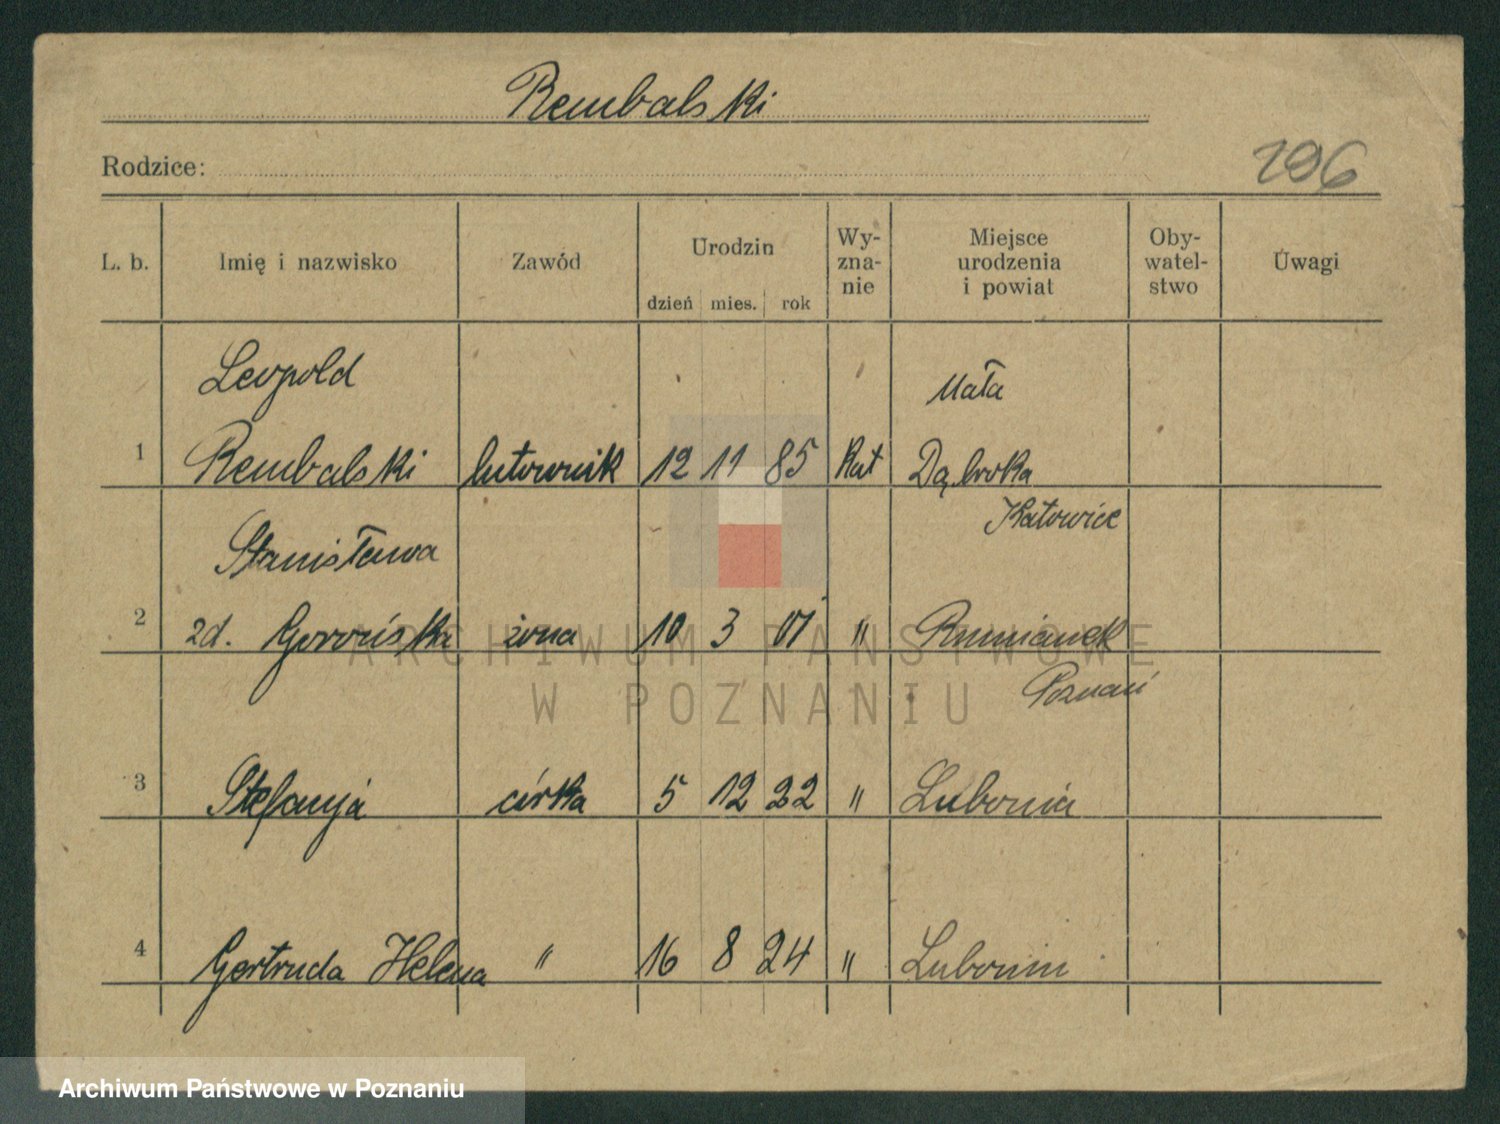 Rembalski
Rodzice:
196
L. b. Imię i nazwisko Zawód Urodzin Wy-zna-nie Miejsce urodzenia i powiat Oby-watel-stwo Uwagi
dzień mies. rok
Leopold Mała
1 Rembalski lutownik 12 11 85 Kat Dąbrowka
Katowice
Stanisława
2 zd. żona 10 3 01 " Rumianek
Poznań
3 Stefanja córka 5 12 22 " Luboniu
4 Gertruda Helena " 16 8 24 " Luboniu
ARCHIWUM PAŃSTWOWE
W POZNANIU
Archiwum Państwowe w Poznaniu